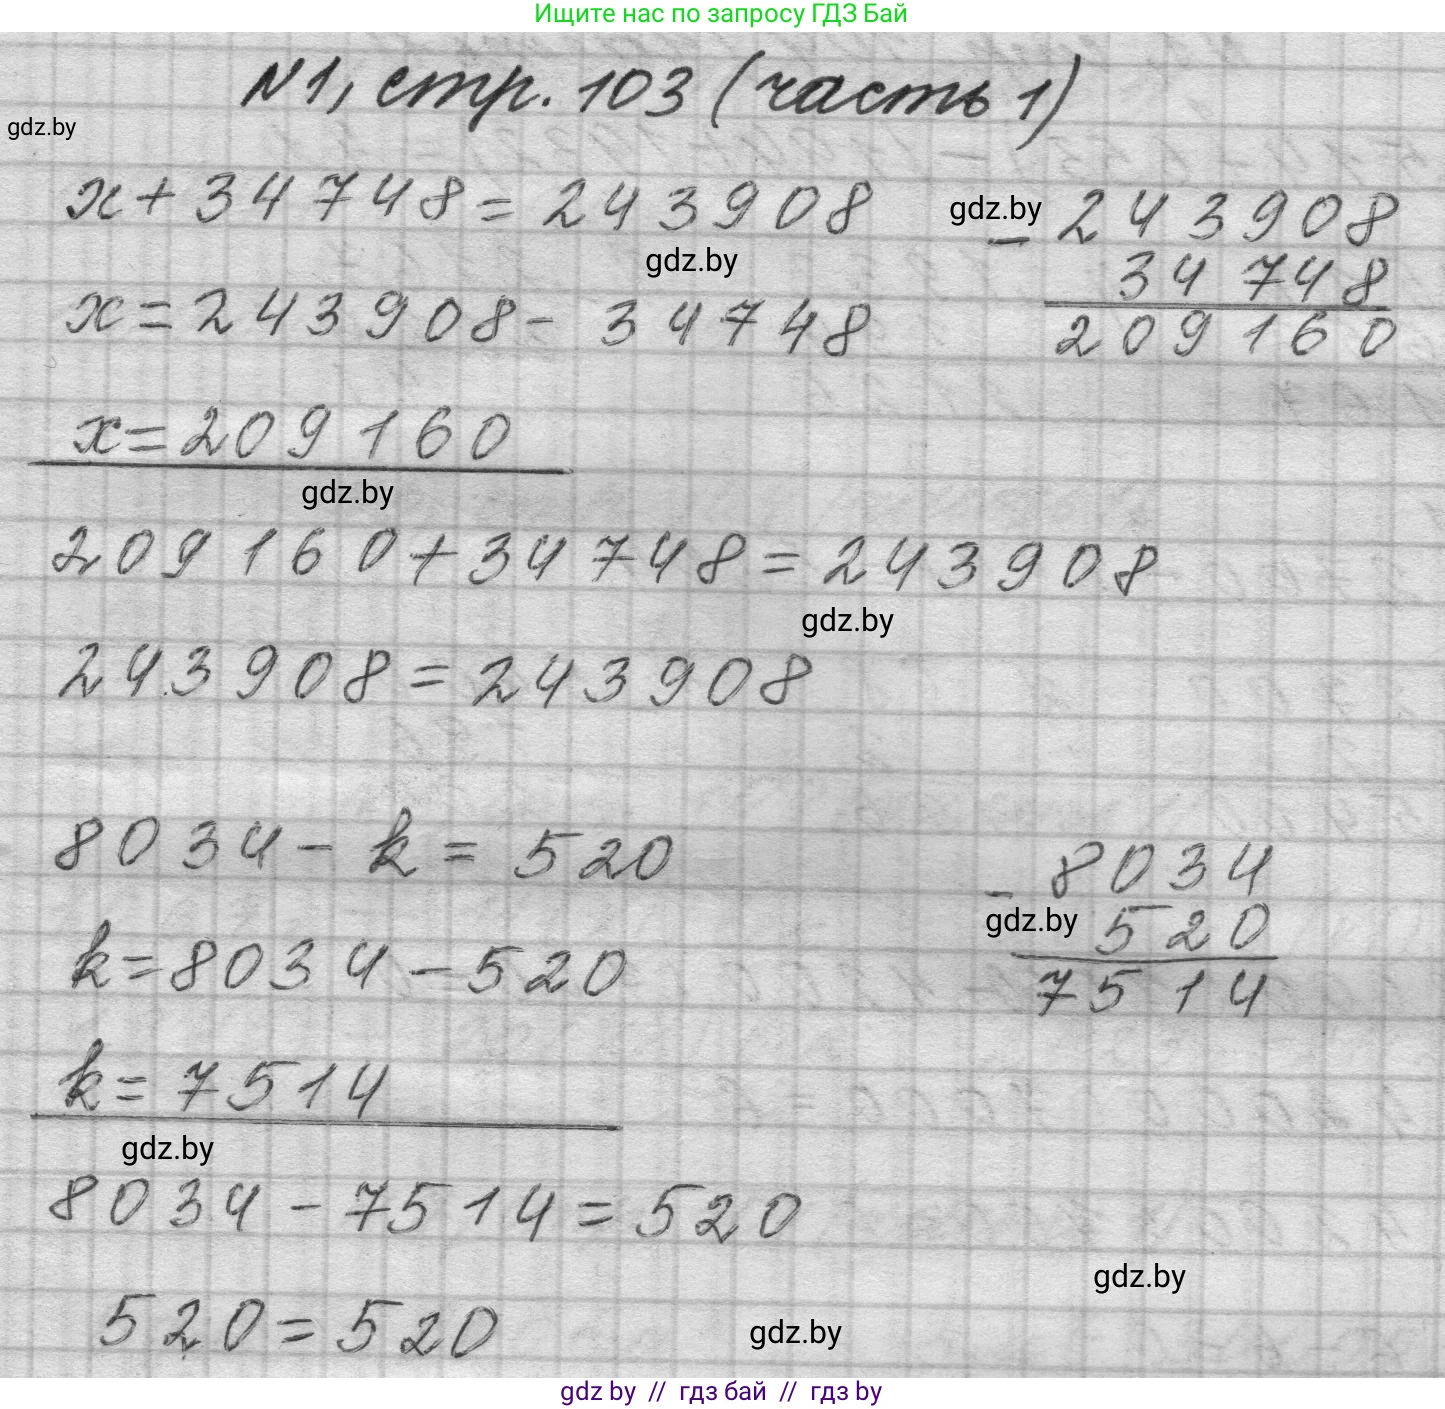 Ищите нас по запросу ГДЗ Бай
N1, стр. 103 (часть 1)
gdz.by
x + 34748 = 243908
gdz.by
x = 243908 - 34748
gdz.by
- 243908
34748
209160
x = 209160
gdz.by
209160 + 34748 = 243908
gdz.by
243908 = 243908
8034 - k = 520
k = 8034 - 520
- 8034
gdz.by
520
7514
k = 7514
gdz.by
8034 - 7514 = 520
gdz.by
520 = 520
gdz.by
gdz by // гдз бай // гдз by